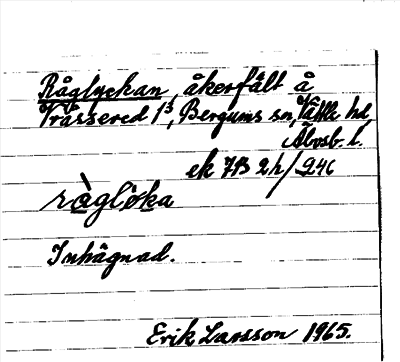 Råglyckan, åkerfält å
Tråssered 1³, Bergums sn, Vättle hd,
Älvsb. l.
ek 7B 2h/246
råglöka
Inhägnad.
Erik Larsson 1965.